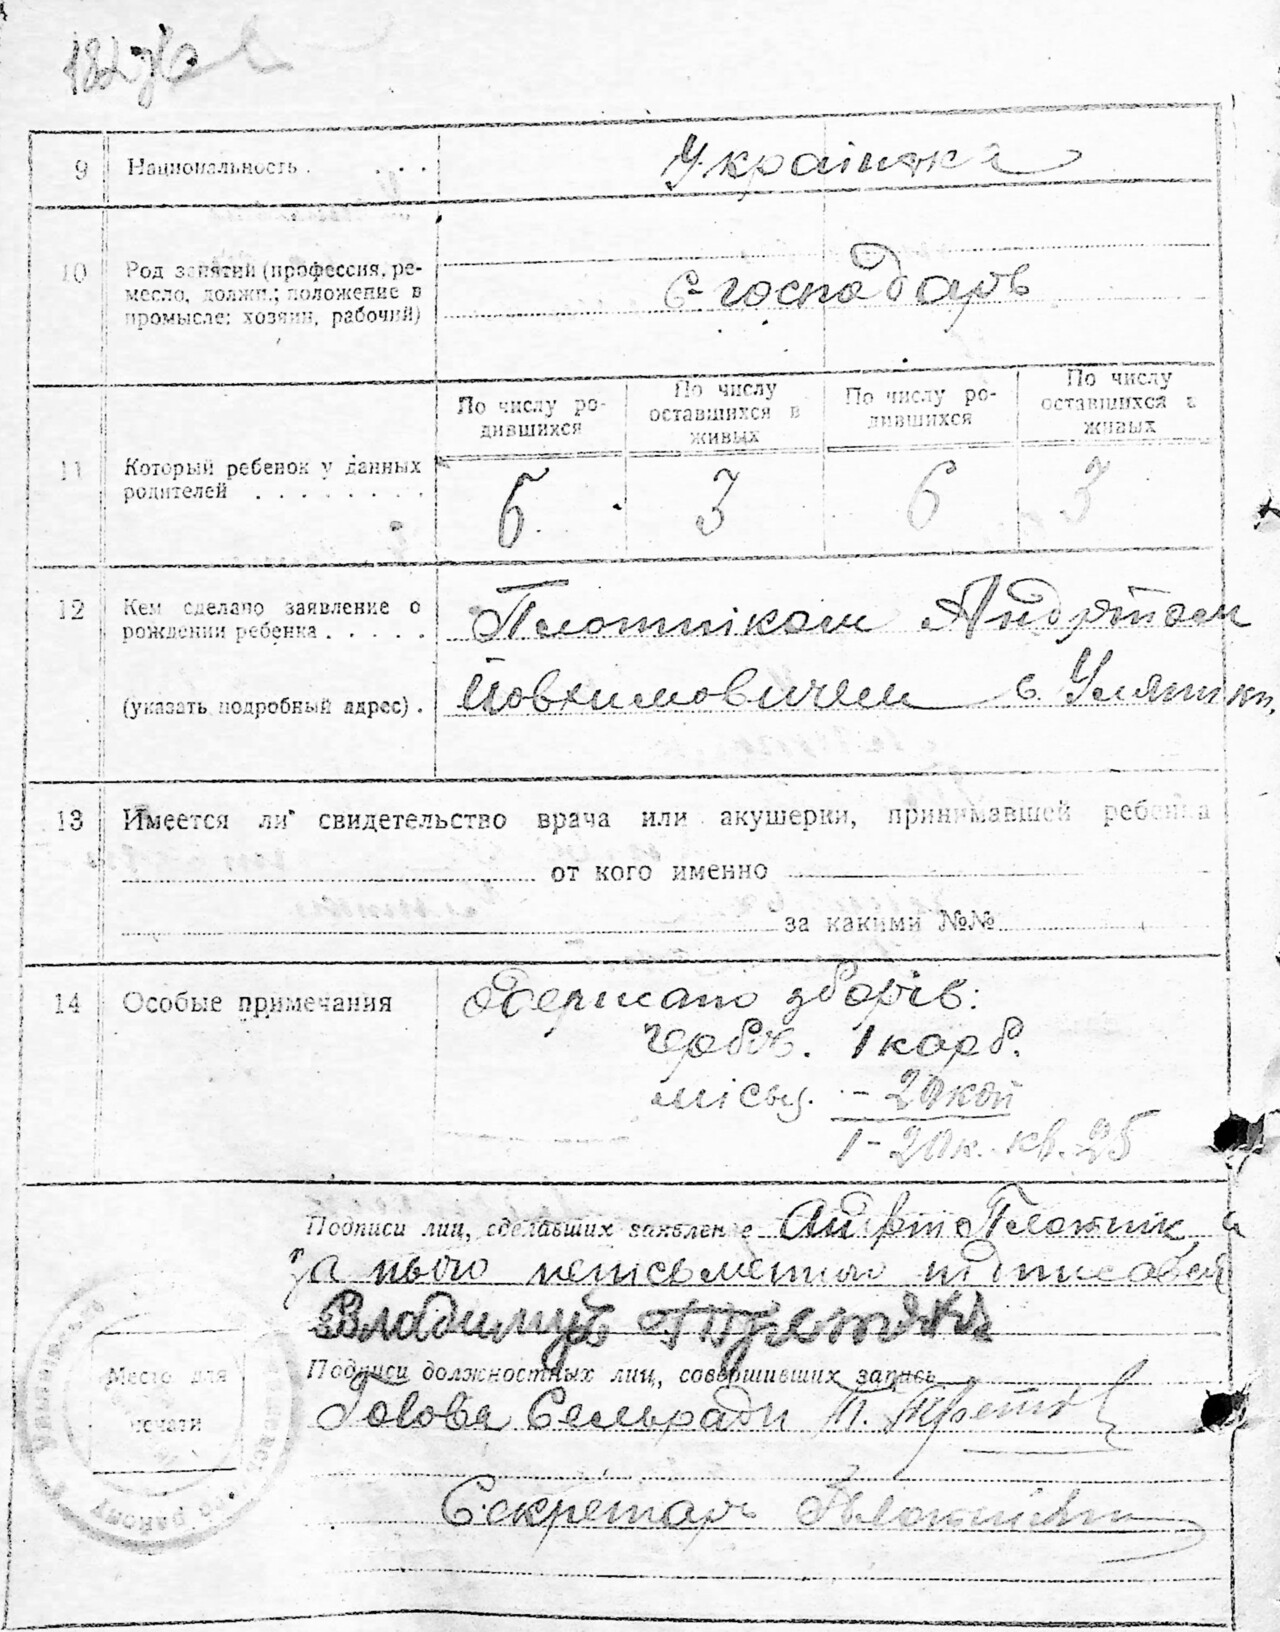 9 Национальность . . . .
Українка
10 Род занятий (профессия, ре-
месло, должн.; положение в
промысле: хозяин, рабочий)
с-господарь
По числу ро-
дившихся
По числу
оставшихся в
живых
По числу ро-
дившихся
По числу
оставшихся в
живых
11 Который ребенок у данных
родителей . . . . . . . .
6 3 6 3
12 Кем сделано заявление о
рождении ребенка . . . . .
Плотніком Андрієм
(указать подробный адрес) .
Йовхимовичем с.
13 Имеется ли свидетельство врача или акушерки, принимавшей ребенка
от кого именно
за какими №№
14 Особые примечания
Одержано зборів:
1 карб.
місц. - 20 коп
1-20к. кв. 25
Подписи лиц, сделавших заявление Плотнік, а
за нього неписьменного підписався
Владимир
Подписи должностных лиц, совершивших запись
Место для
печати
Голова Сельради П.
Секретарь